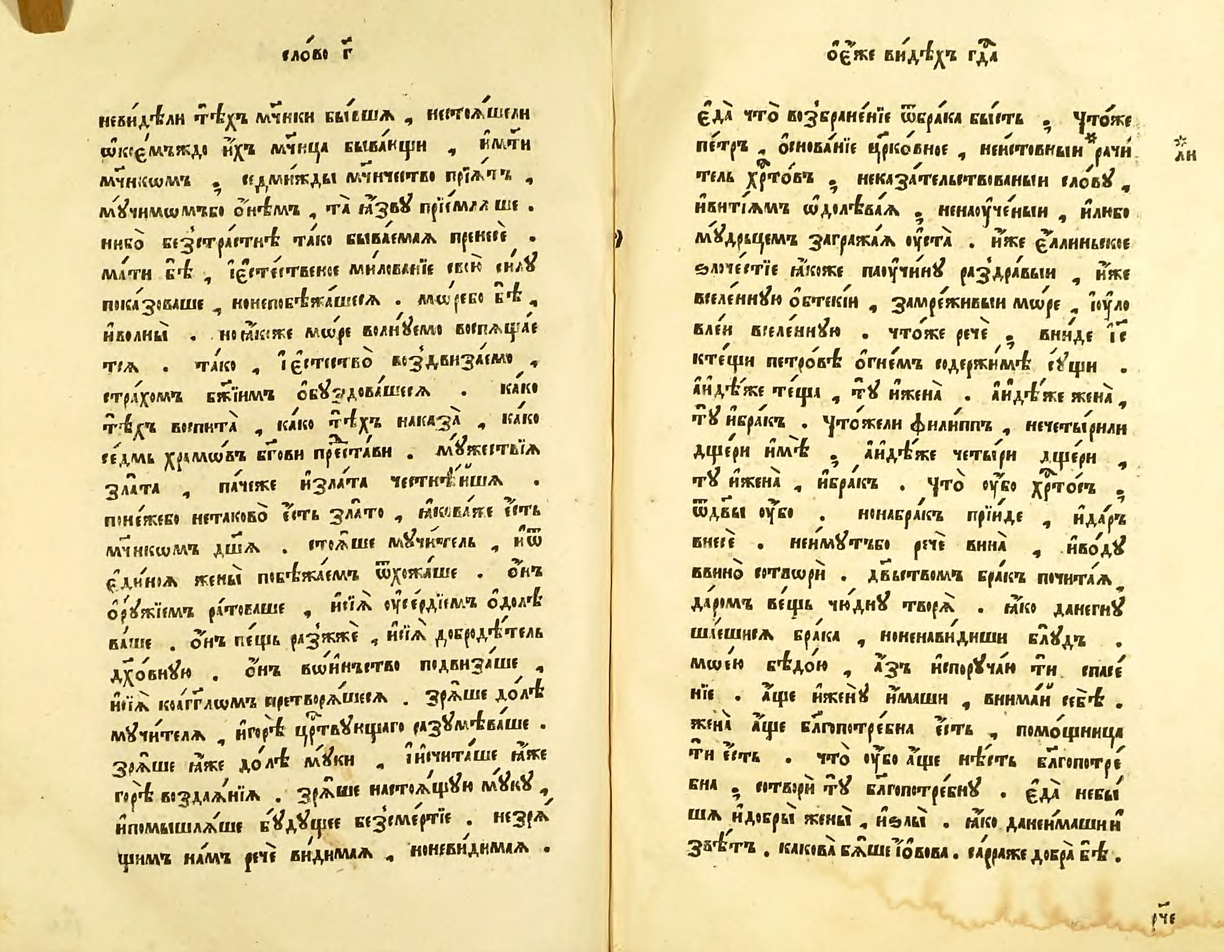 сло́во г҃
неви́дѣли тѣ́хъ мч҃нки бы́вшѧ , нестоѧ́шели
ѡ҆коємъждо и҆́хъ мч҃нца быва́ющи , и҆мт҃и
мч҃нкѡмъ ; седми́жды мч҃нчество прїѧ́тъ ,
мꙋ́чимѡмъбо ѻ҆нѣ́мъ , та̀ ꙗ҆́звꙋ прїе́млѧше .
нибо̀ безстра́стнѣ та́ко быва́емаѧ пренесѐ .
ма́ти бѣ̀ , їєсте́ственое ми́лованїе свою̀ си́лꙋ
пока́зоваше , нонепобѣжа́шесѧ . мѡ́ребо бѣ̀ ,
и҆во́лны̀ . ноꙗ҆́коже мѡ́ре волнꙋ́емо воспѧща́е
тсѧ . та́ко , їєстество̀ воздвиза́емо ,
стра́хомъ бж҃їимъ ѡ҆бꙋздова́шеся . ка́ко
тѣ́хъ воспита̀ , ка́ко тѣ́хъ наказа̀ , ка́ко
се́дмь хра́мѡвъ бг҃ови предста́ви . мꙋ́жествїѧ
зла́та , па́чеже и҆зла́та честнѣ́йшѧ .
поне́жебо нетаково̀ є҆́сть зла́то , ꙗ҆кова́же є҆́сть
мч҃нкѡмъ дш҃ѧ . стоѧ́ше мꙋчи́тель , и҆ѿ
є҆ди́ноѧ жены̀ побѣжа́емъ ѿхожа́ше . ѻ҆́нъ
ѻ҆рꙋ́жїемъ ра́товаше , и҆сїѧ̀ ᲂу҆се́рдїемъ ѻ҆долѣ
ва́ше . ѻ҆́нъ пе́щь разжжѐ , и҆сїѧ̀ добродѣ́тель
дх҃о́внꙋю . ѻ҆́нъ вѡ́иньство подвиза́ше ,
и҆сїѧ̀ коа́гг҃лѡмъ претворѧ́шесѧ . зрѧ́ше до́лѣ
мꙋчи́телѧ , и҆горѣ̀ црⷭ҇твꙋющаго разꙋмѣ́ваше .
зрѧ́ше ꙗ҆́же до́лѣ мꙋ́ки , їи҆счита́ше ꙗ҆́же
горѣ̀ воздаѧ́нїѧ . зрѧ́ше настоѧ́щꙋю мꙋ́кꙋ ,
и҆помышлѧ́ше бꙋ́дꙋщее безсме́ртїе . незрѧ́
щимъ на́мъ речѐ ви́димаѧ , ноневи́димаѧ .
ѻ҆є҆́же ви́дѣхъ гдⷭ҇а
є҆да̀ что̀ возбране́нїе ѿбра́ка бы́сть ; что́же
пе́тръ , ѻ҆снова́нїе цр҃ко́вное , неи́стовныи *рачи́
тель хрⷭ҇то́въ ; неказа́тельствованыи сло́вꙋ ,
и҆вити́ѧмъ ѡ҆долѣ́ваѧ ; ненаᲂу҆че́ныи , и҆́либо
мꙋ́дрьцемъ загражаѧ ᲂу҆ста̀ . и҆́же є҆́ллиньское
ѕлоче́стїе ꙗ҆́коже паᲂу҆чи́нꙋ раздра́выи , и҆́же
вселе́ннꙋю ѻ҆бтекі́и , замре́живыи мѡ́ре , їᲂу҆ло
вле́и вселе́ннꙋю . что́же речѐ ; вни́де і҆с҃
кте́щи петро́вѣ ѻ҆гне́мъ содержи́мѣ сꙋ́щи .
а҆идѣ́же те́ща , тꙋ̀ и҆жена̀ . а҆идѣ́же жена̀ ,
тꙋ̀ и҆бра́къ . что́жели фили́ппъ , нечеты́рили
дще́ри и҆мѣ̀ ; а҆идѣ́же четы́ри дще́ри ,
тꙋ̀ и҆жена̀ , и҆бра́къ . что̀ ᲂу҆́бо хрⷭ҇то́съ ;
ѿдв҃ы ᲂу҆́бо . нонабра́къ прїи́де , и҆да́ръ
внесѐ . неи́мꙋтъбо речѐ вина̀ , и҆во́дꙋ
ввино̀ сотворѝ . дв҃ьствомъ бра́къ почита́ѧ ,
да́ромъ ве́щь чю́днꙋ творѧ̀ . ꙗ҆́ко данегнꙋ
ша́ешисѧ бра́ка , ноненави́диши блꙋ́дъ .
мѡе́ю бѣдо́ю , а҆́зъ и҆спорꙋча́ю тѝ спасе́
нїе . а҆́ще и҆женꙋ̀ и҆́маши , внима́й себѣ̀ .
жена̀ а҆́ще благопотре́бна є҆́сть , помо́щница
тѝ є҆́сть . что̀ ᲂу҆́бо а҆́ще нѣ́сть благопотре́
бна ; сотворѝ тꙋ̀ благопотре́бнꙋ . є҆да̀ небы́
шѧ и҆добры̀ же́ны , и҆ѕлы̀ . ꙗ҆́ко данеи́машии
звѣ́тъ . какова̀ бѧ́ше і҆ѡ́вова . са́рраже добра̀ бѣ̀ .
ли
рч҃е